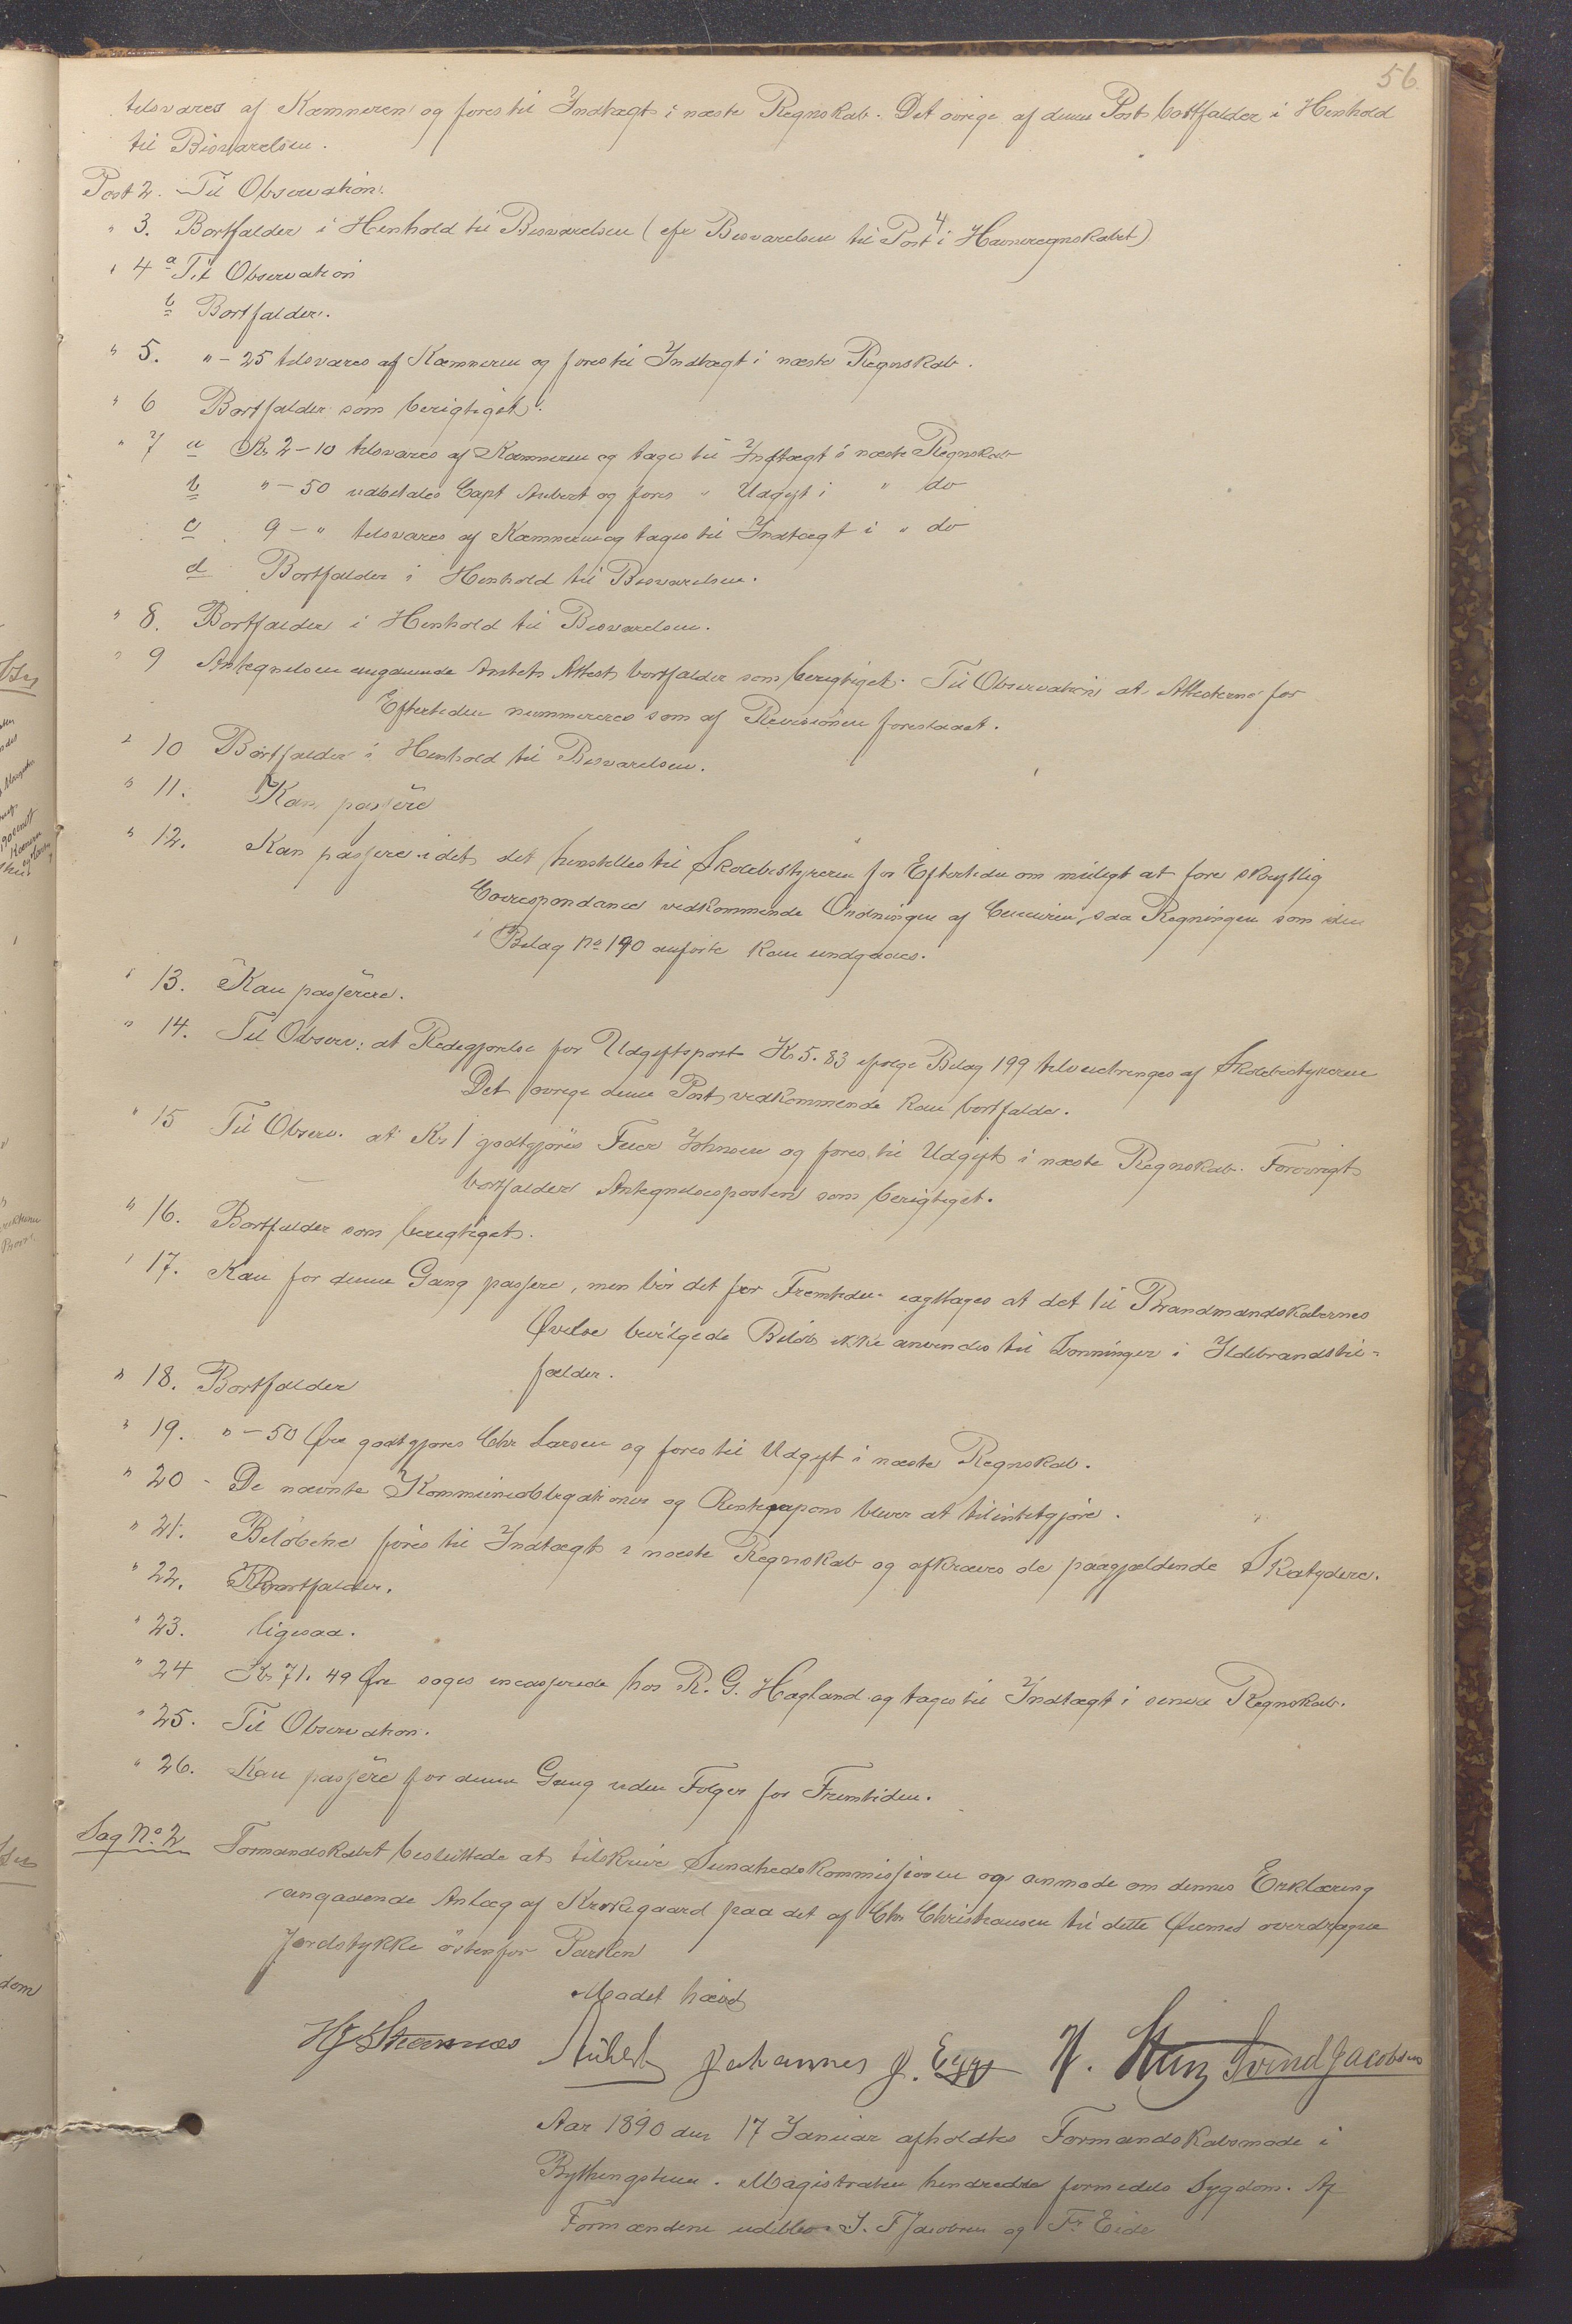 56.
tilsvares af Kæmneren og føres til Indtægt i næste Regnskab. Det øvrige af denne Post bortfalder i Henhold
til Besvarelsen.
Post 2. Til Observation.
" 3. Bortfalder i Henhold til Besvarelsen (cfr Besvarelsen til Post 4 i Havneregnskabet)
" 4 a Til Observation
b Bortfalder.
" 5. " - 25 tilsvares af Kæmneren og føres til Indtægt i næste Regnskab.
" 6 Bortfalder som berigtiget.
" 7 a Kr 2-10 tilsvares af Kæmneren og tages til Indtægt i næste Regnskab
b " - 50 udbetales Capt Aubert og føres " Udgift i " do
c 9 - " tilsvares af Kæmneren og tages til Indtægt i " do
d Bortfalder i Henhold til Besvarelsen.
" 8. Bortfalder i Henhold til Besvarelsen.
" 9 Antegnelsen angaaende Attest bortfalder som berigtiget. Til Observation at Attesterne for
Eftertiden nummereres som af Revisionen foreslaaet.
" 10 Bortfalder i Henhold til Besvarelsen.
" 11. Kan passere
" 12. Kan passere idet det henstilles til Skolebestyreren for Eftertiden om muligt at føre skriftlig
Correspondance vedkommende Ordningen af saa Regningen som den
i Bilag No 190 anførte kan undgaaes.
" 13. Kan passere.
" 14. Til Observ: at Redegjørelse for Udgiftspost Kr 5.83 ifølge Bilag 199 tilveiebringes af Skolebestyreren
Det øvrige denne Post vedkommende kan bortfalde.
" 15 Til Observ. at Kr 1 godtgjøres Johnsen og føres til Udgift i næste Regnskab. Forøvrigt
bortfalder Antegnelsesposten som berigtiget.
" 16. Bortfalder som berigtiget.
" 17. Kan for denne Gang passere, men bør det for Fremtiden iagttages at det til Brandmandskabernes
Øvelse bevilgede Beløb ikke anvendes til Lønninger i Ildebrandstil-
fælder.
" 18. Bortfalder
" 19. " - 50 Øre godtgjøres Chr Larsen og føres til Udgift i næste Regnskab.
" 20 - De nævnte Kommuneobligationer og Rentecupons bliver at tilintetgjøre.
" 21. Beløbene føres til Indtægt i næste Regnskab og afkræves de paagjældende Skatydere.
" 22. Bortfalder.
" 23. ligesaa.
" 24 Kr 71.49 Øre søges incasserede hos R. G. Hagland og tages til Indtægt i senere Regnskab.
" 25. Til Observation.
" 26. Kan passere for denne Gang uden Følger for Fremtiden.
Sag No 2 Formandskabet besluttede at tilskrive Sundhedskommissionen og anmode om dennes Erklæring
angaaende Anlæg af Kirkegaard paa det af Chr Christiansen til dette Øiemed overdragne
Jordstykke østenfor Parken
Mødet hævet
Aubert Johannes J. Egge Svend Jacobsen
Aar 1890 den 17 Januar afholdtes Formandskabsmøde i
Bythingstuen. Magistraten hindredes formedels Sygdom. Af
Formændene udeblev S. F Jacobsen og Fr Eide